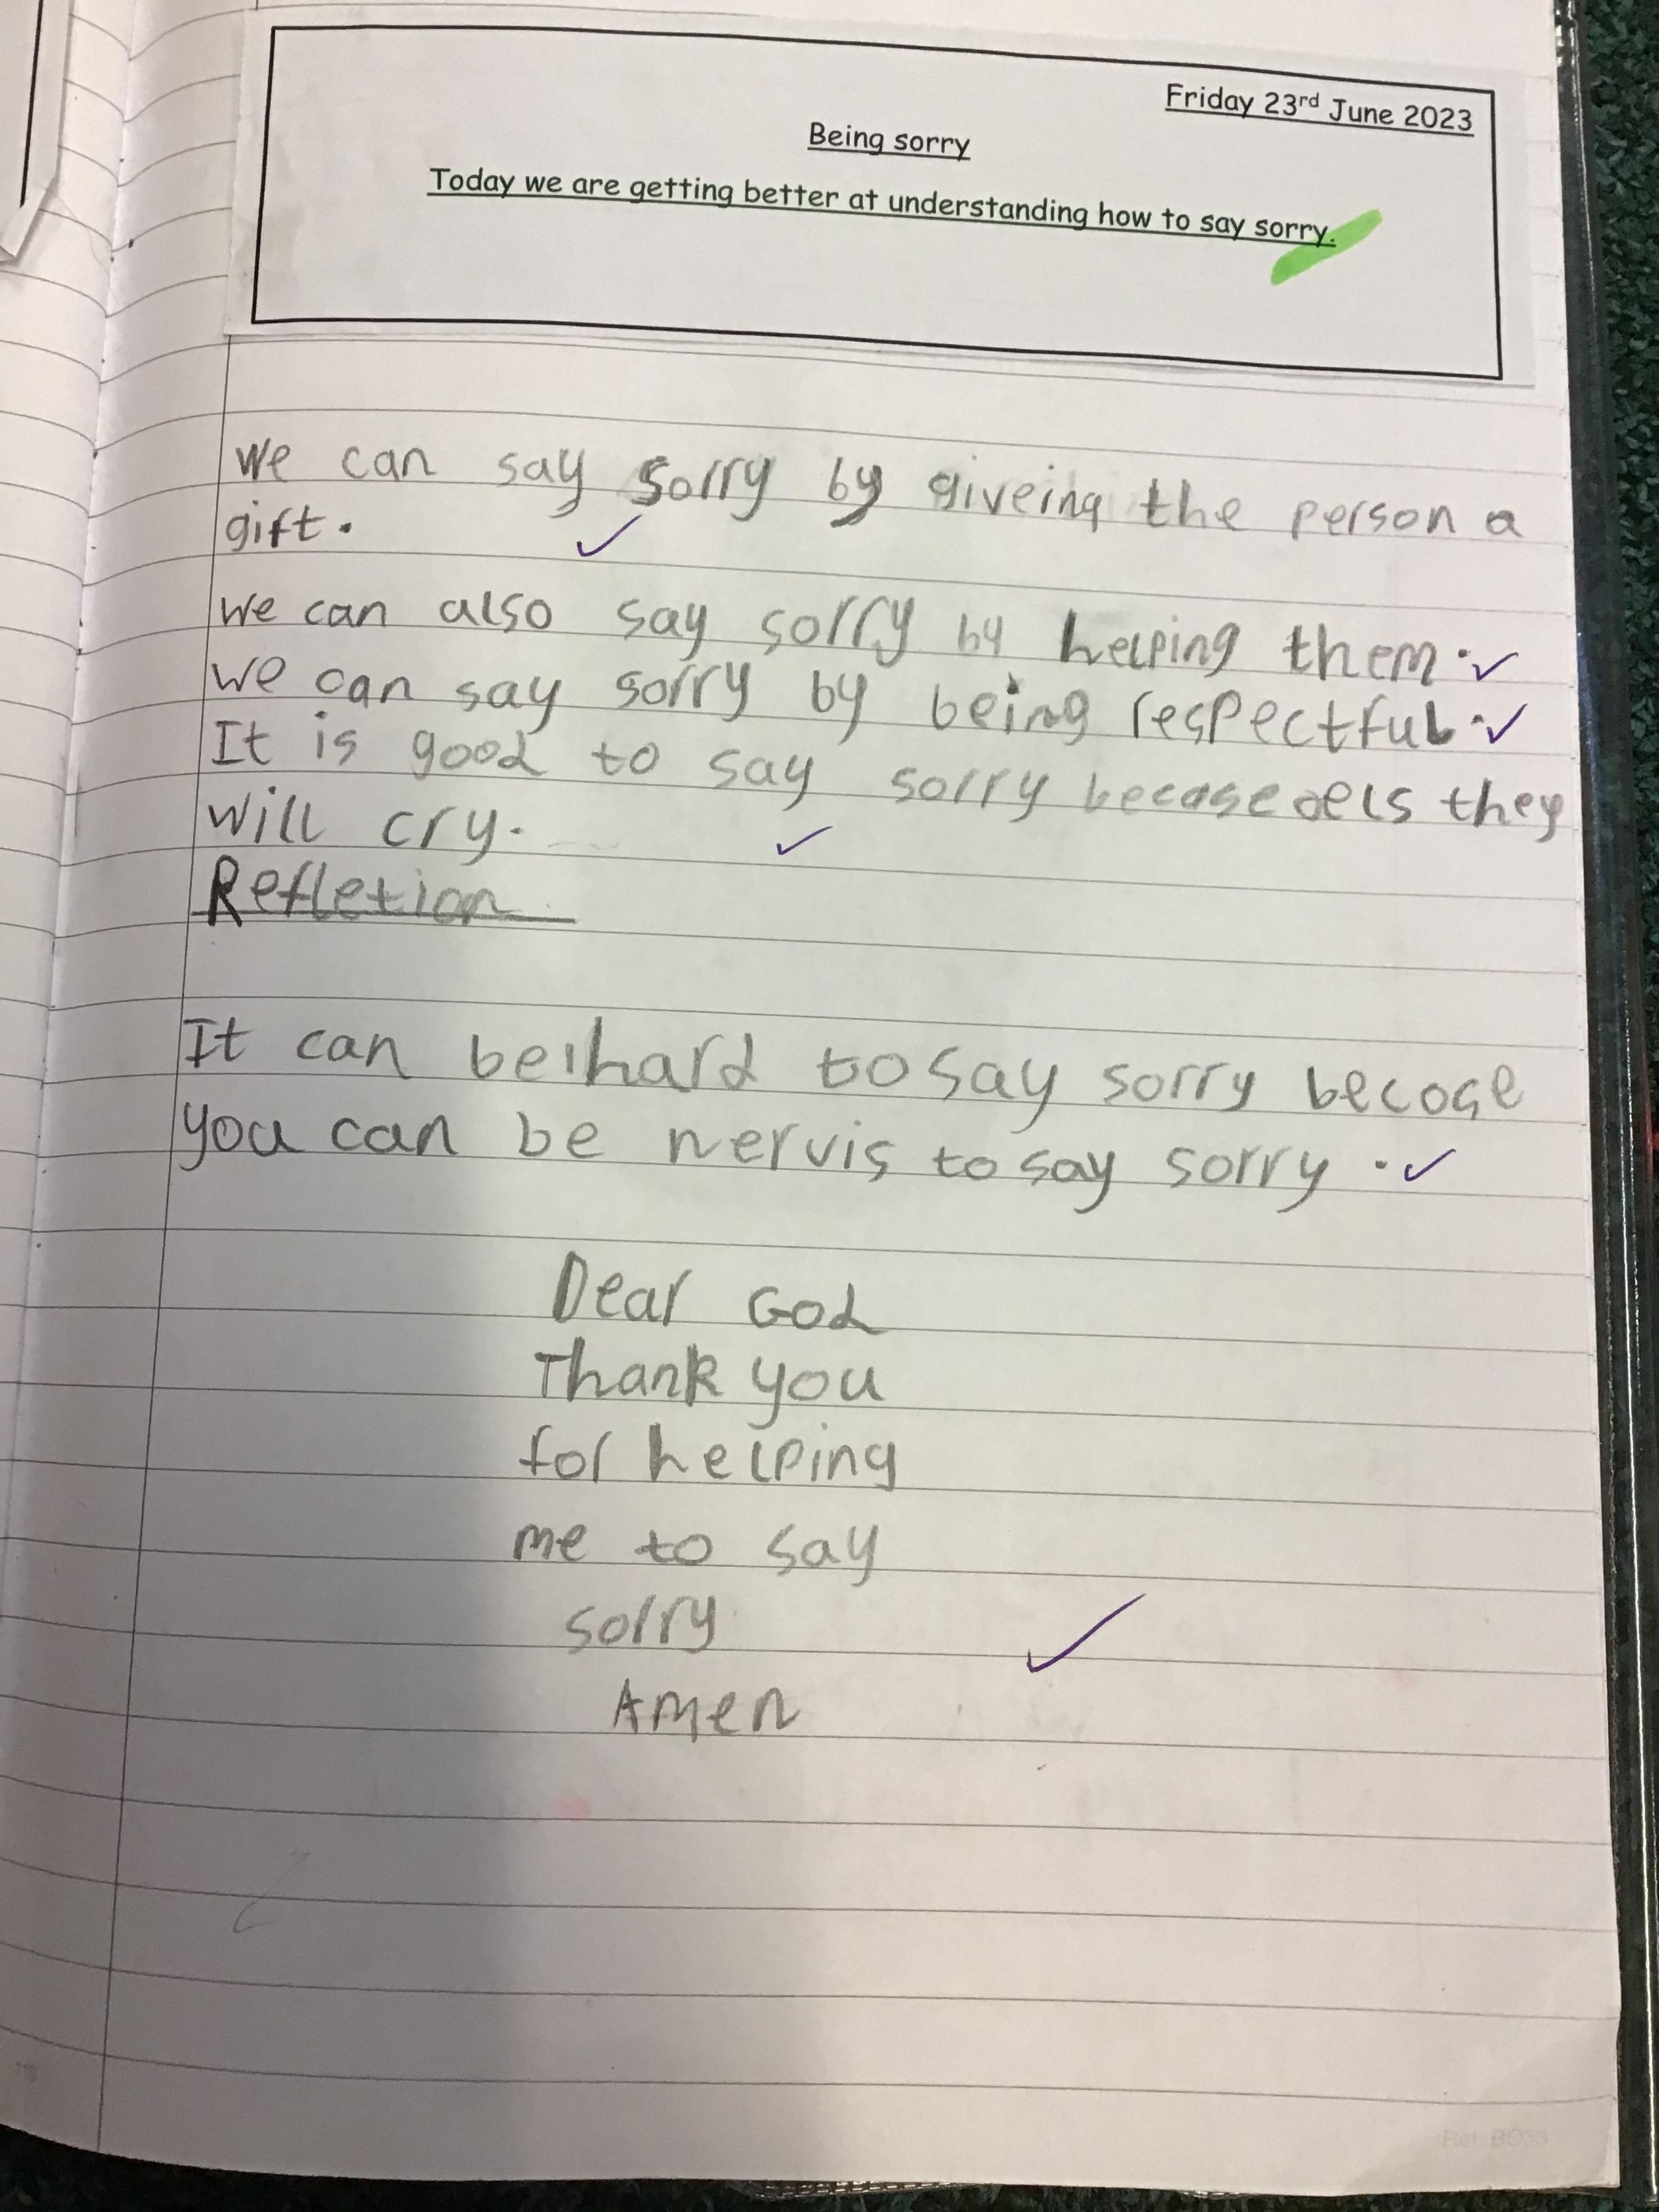 Friday 23rd June 2023
Being sorry
Today we are getting better at understanding how to say sorry.
We can say sorry by giveing the person a
gift.
We can also say sorry by helping them.
We can say sorry by being respectful.
It is good to say sorry becase els they
will cry.
Refletion
It can be hard to say sorry becose
you can be nervis to say sorry.
Dear God
Thank you
for helping
me to say
sorry
Amen